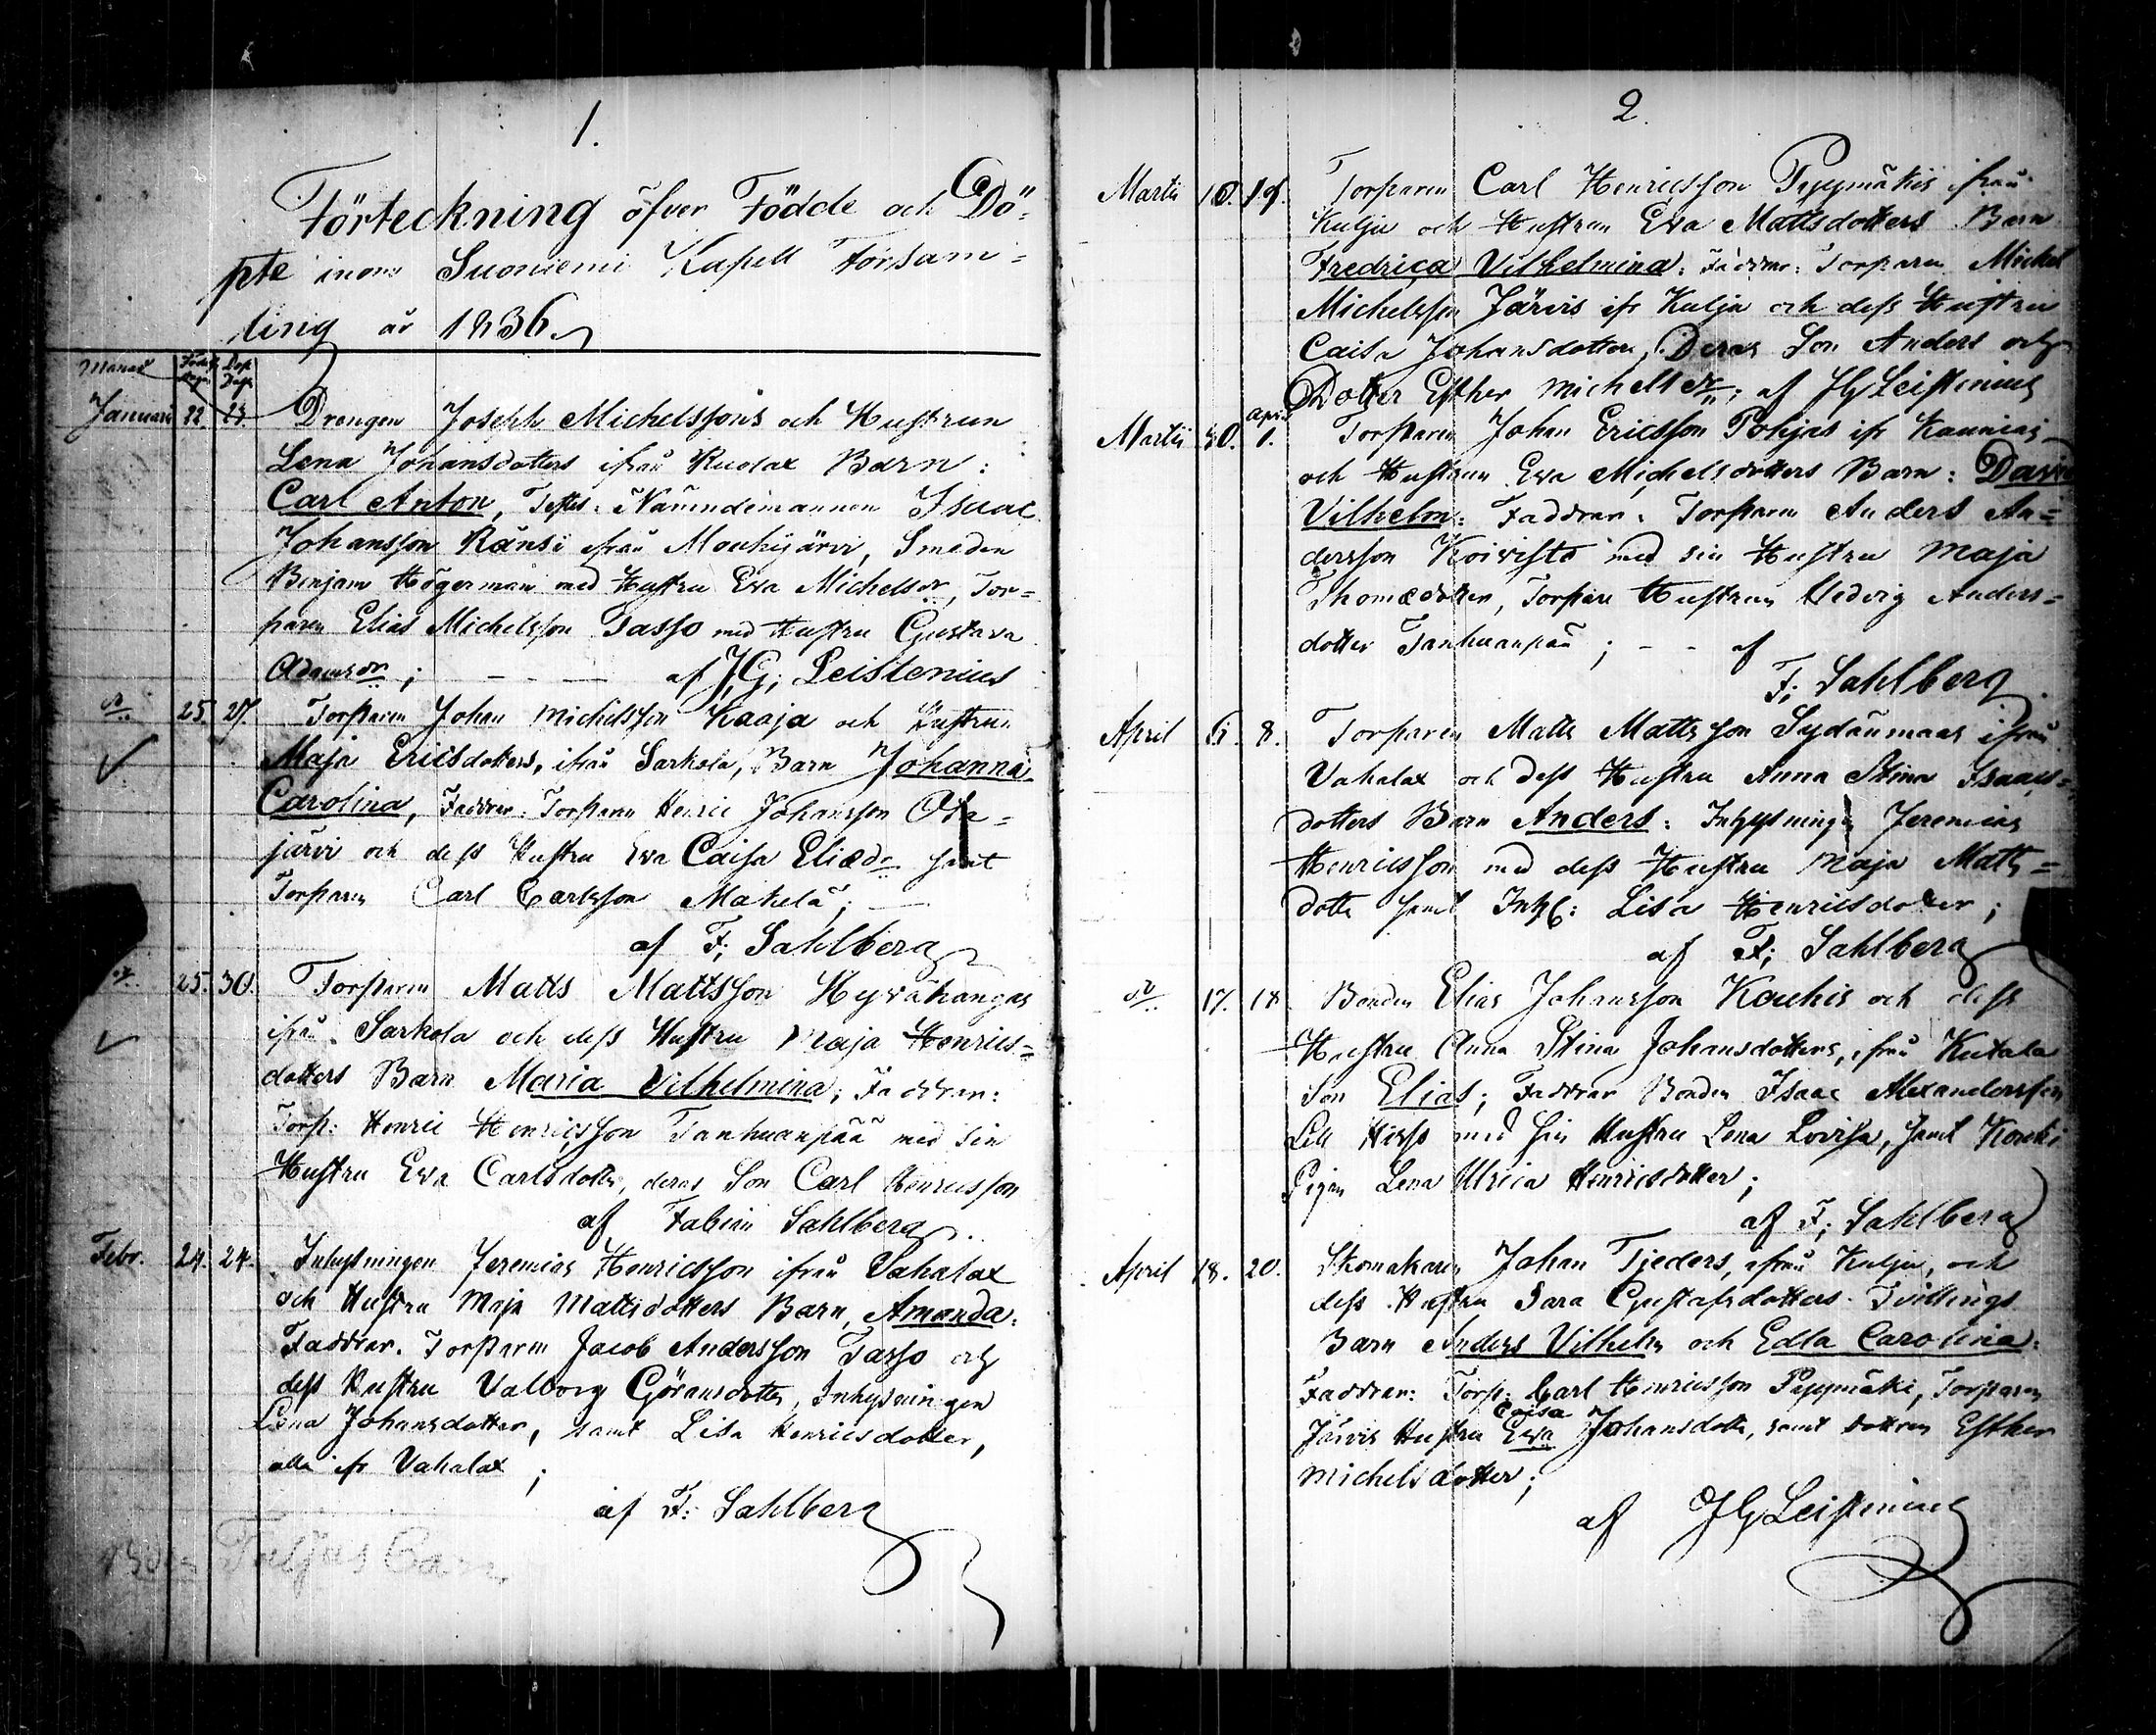 1.
Förteckning öfver Födde och Dö-
pte inom Suoniemi Kapell Försam=
ling år 1836.
Månad Född. Dagen Döp. Dagen
Januari 22. 23. Drengen Joseph Michelssons och Hustrun
Lena Johansdotters ifrån Kuolax Barn:
Carl Anton, Testes. Nämndemannen Isaac
Johansson Ränsi ifrån Mouhijärvi, Smeden
Benjam Högerman med Hustru Eva Michelsdr, Tor=
paren Elias Michelsson Tasso med Hustru Gustava
Adamsdr; af J,G; Leistenius
dr 25. 27. Torparen Johan Michelsson Kaaja och Hustrun
Maja Ericsdotters, ifrån Sarkola, Barn Johanna
Carolina, Faddrar. Torparen Henric Johansson
järvi och dess Hustru Eva Caisa Eliædr samt
Torparen Carl Carlsson Makelä;
af F; Sahlberg
25. 30. Torparen Matts Mattsson Hyväkangas
ifrån Sarkola och dess Hustru Maja Henrics=
dotters Barn Maria Vilhelmina; Faddrar:
Torp: Henric Henricsson Tanhuanpää med sin
Hustru Eva Carlsdotter, deras Son Carl Henricsson
af Fabian Sahlberg.
Febr. 24. 24. Inhysningen Jeremias Henricsson ifrån Vahalax
och Hustru Maja Mattsdotters Barn, Amanda.
Faddrar. Torparen Jacob Andersson Tasso och
dess Hustru Valborg Göransdotter, Inhysningen
Lena Johansdotter, samt Lisa Henricsdotter,
alla ifr Vahalax;
af F: Sahlberg
2.
Martii 18. 19. Torparen Carl Henricsson Pyymäkis ifrån
Kulju och Hustrun Eva Mattsdotters Barn
Fredrica Vilhelmina: Faddrar: Torparen Michel
Michelsson Järvis ifr Kulju och dess Hustru
Caisa Johansdotter, Deras Son Anders och
Dotter Esther Michelsdr; af JG Leistenius
Martii 30. April 1. Torparen Johan Ericsson Pohjas ifr Kauniais
och Hustrun Eva Michelsdotters Barn: David
Vilhelm: Faddrar. Torparen Anders An=
dersson Koivisto med sin Hustru Maja
Thomædotter, Torpare Hustrun Hedvig Anders=
dotter Tanhuanpää; - - af
F; Sahlberg
April 6. 8. Torparen Matts Mattsson Sydänmaas ifrån
Vahalax och dess Hustru Anna Stina Isaacs=
dotters Barn Anders: Inhysningen Jeremias
Henricsson med dess Hustru Maja Matts=
dotter samt Inh: Lisa Henricsdotter;
af F; Sahlberg
dr 17. 18 Bonden Elias Johansson Koukis och dess
Hustru Anna Stina Johansdotters, ifrån Kutala
Son Elias; Faddrar Bonden Isaac Alexandersson
Lill Hirso med sin Hustru Lena Lovisa, samt Kouki
Pigan Lena Ulrica Henricsdotter;
af F; Sahlberg
April 18. 20. Skomakaren Johan Tjeders, ifrån Kulju, och
dess Hustru Sara Gustafsdotters Tvillings
Barn Anders Vilhelm och Edla Carolina:
Faddrar: Torp: Carl Henricsson Pyymäki, Torparen
Järvis Hustru Eva Caisa Johansdotter, samt dottren Esther
Michelsdotter;
af JG Leistenius